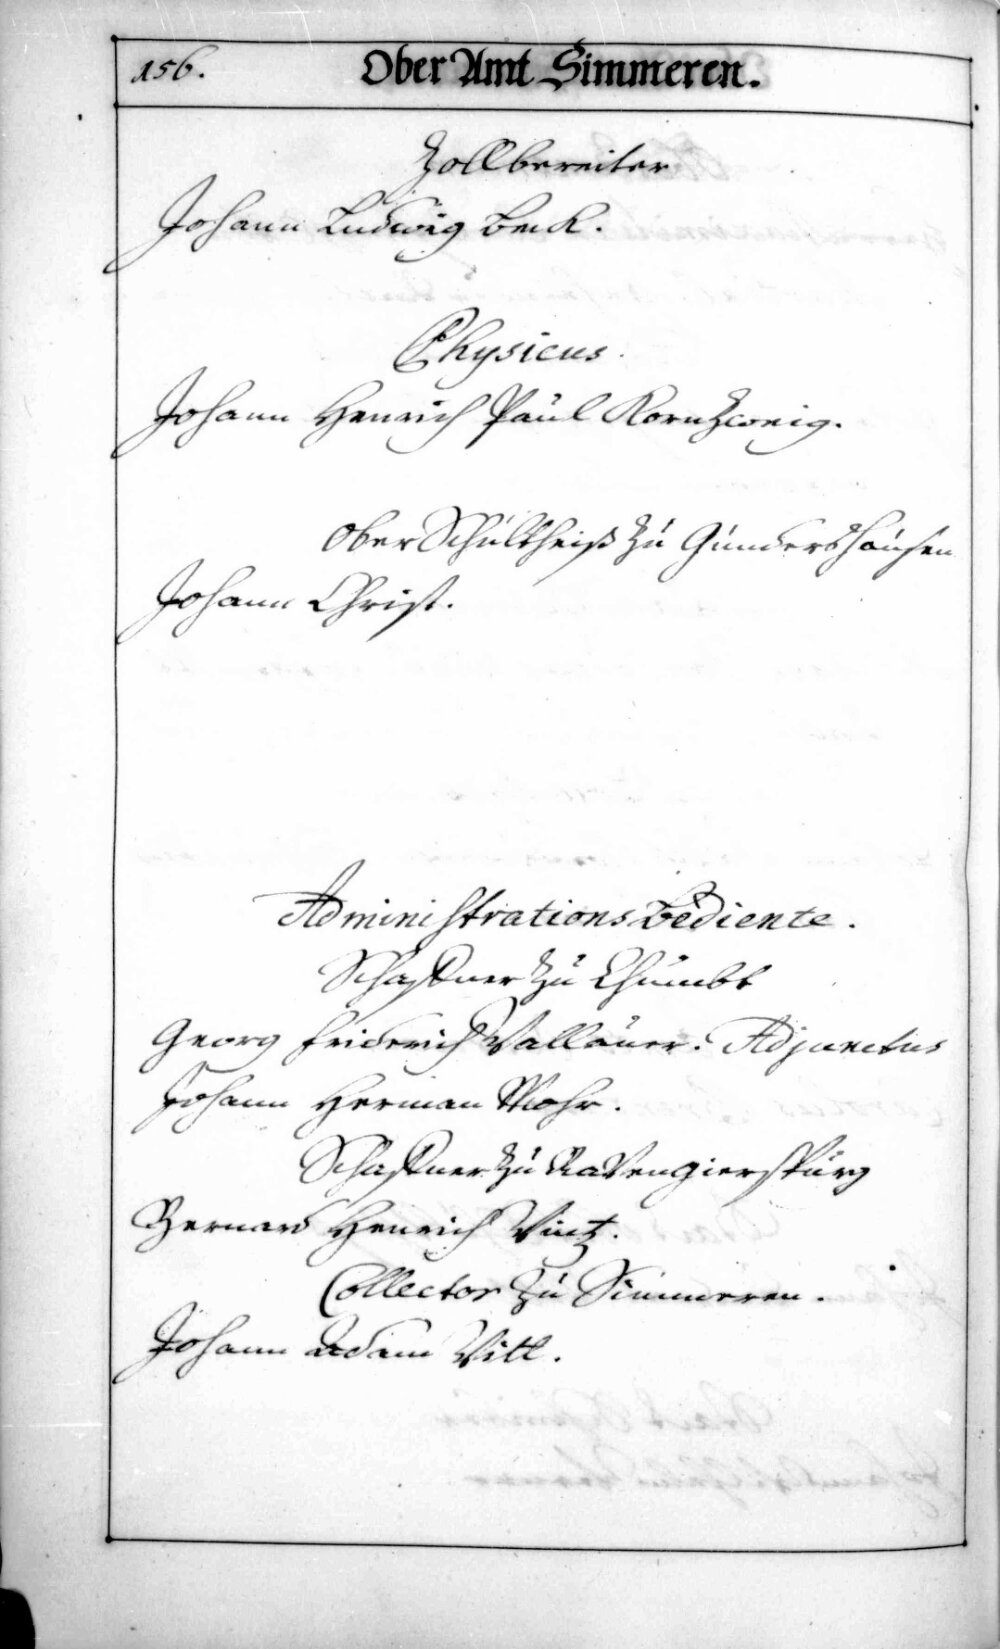 156.
Ober Amt Simmeren.
Zollbereiter
Johann Ludwig Beck.
Physicus.
Johann Henrich Paul Kornzweig.
Ober Schultheiß zu Gundershausen
Johann Christ.
Administrations Bediente.
Schaffner zu Chumbt
Georg Friderich Wallauer. Adjunctus
Johann Herman Mohr.
Schaffner zu Ravengierspurg
Bernard Henrich Vintz.
Collector zu Simmeren.
Johann Adam Vill.